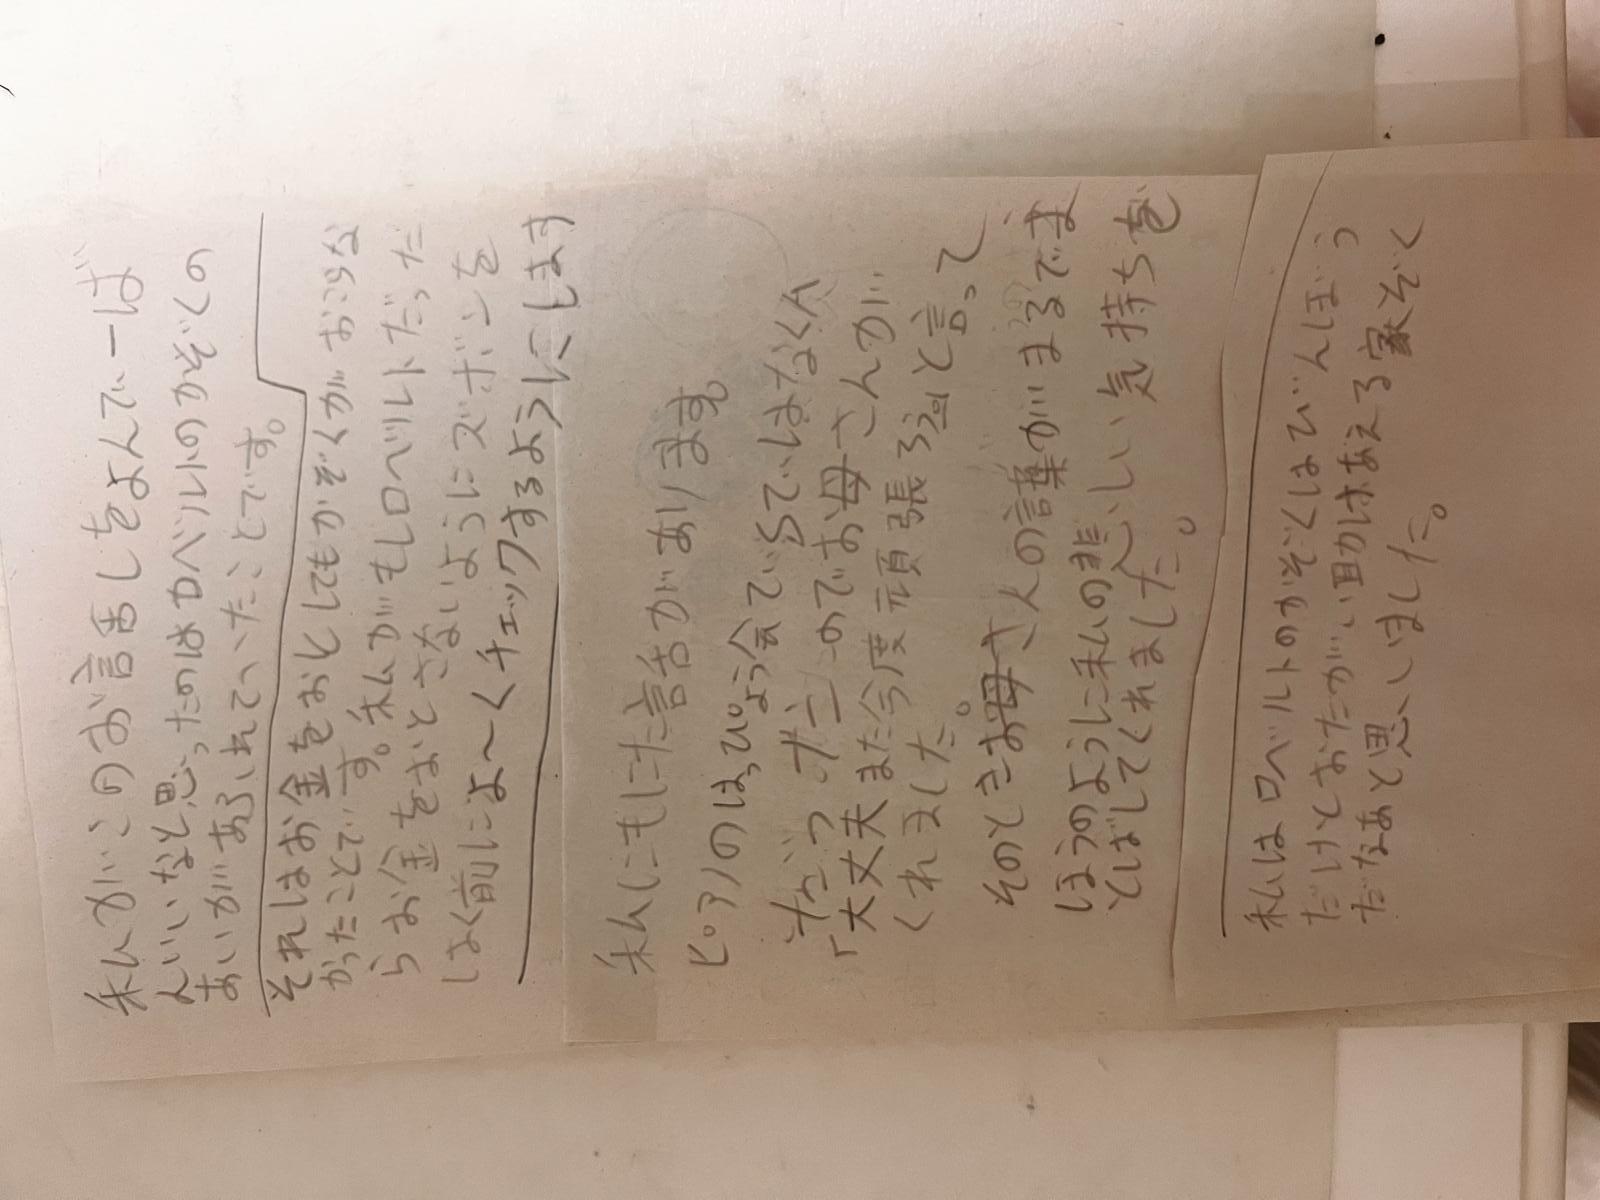 私がこのお話しをよんで一ば
んいいなと思ったのはロベルトのかぞくの
あいがあふれていたことです。
それはお金をおとしてもかぞくがおこらな
かったことです。私がもしロベルトだった
らお金をおとさないようにズボンを
はく前によ〜くチェックするようにします
私にもにた話があります。
ピアノのはっぴょう会で
だったのでお母さんが
「大丈夫また今度頑張ろう」と言って
くれました。
そのときお母さんの言葉がまるでま
ほうのように私の悲しい気持ちを
とばしてくれました。
私はロベルトのかぞくはびんぼう
だけどおたがい助けあえる家ぞく
だなあと思いました。